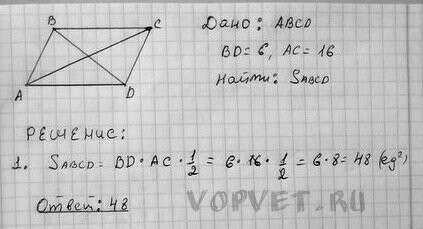 B
C
A
D
Дано: ABCD
BD = 6, AC = 16
Найти: SABCD
РЕШЕНИЕ:
1. SABCD = BD · AC · 1/2 = 6 · 16 · 1/2 = 6 · 8 = 48 (ед²)
Ответ: 48
VOPVET.RU